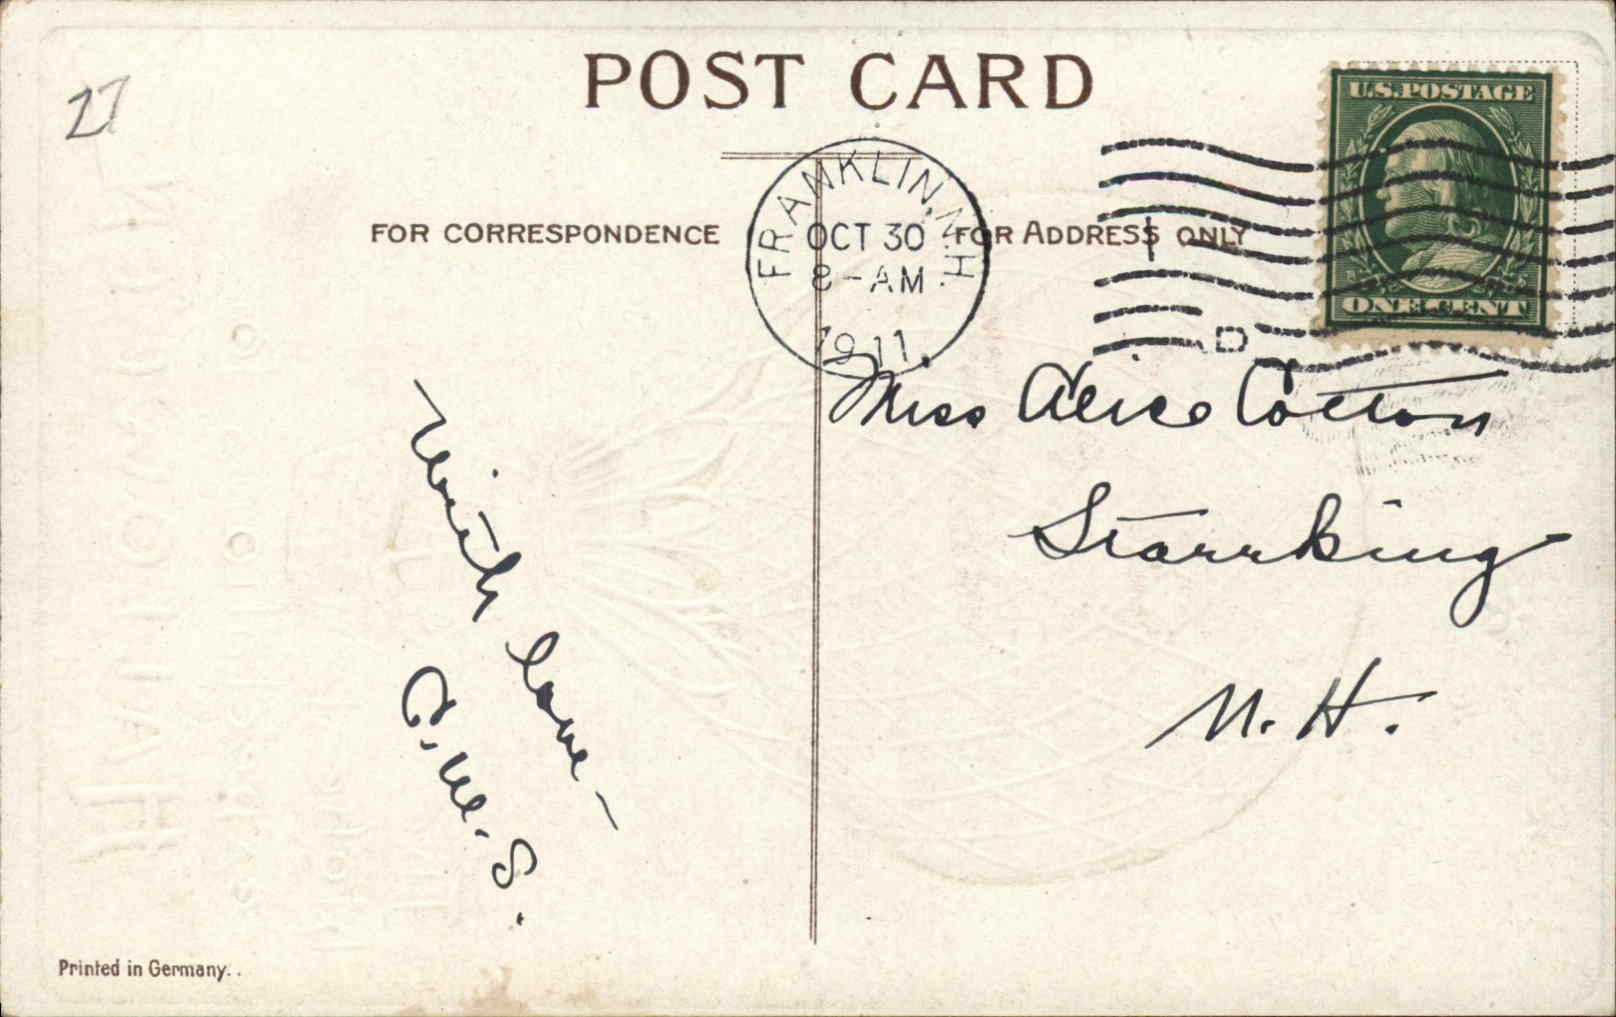 27
POST CARD
U.S. POSTAGE
ONE CENT
FRANKLIN, N.H.
OCT 30
8-AM
1911.
D
FOR CORRESPONDENCE
FOR ADDRESS ONLY
Miss Alice Cotton
Starr King
N. H.
With love -
C. M. S.
Printed in Germany.